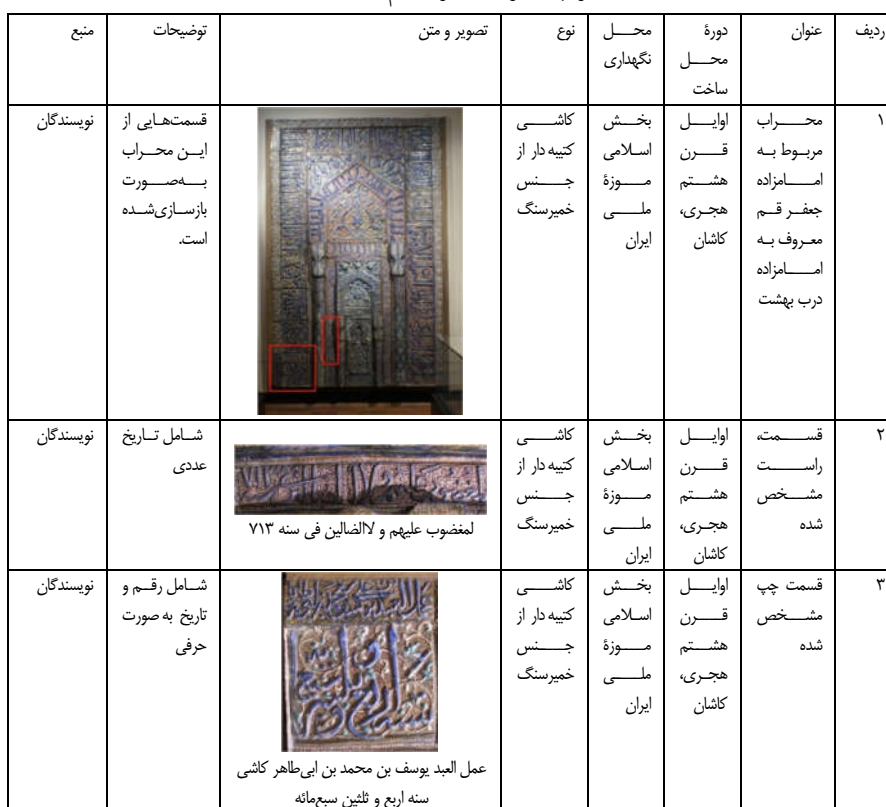 ردیف
عنوان
دورهٔ
محل
ساخت
محل
نگهداری
نوع
تصویر و متن
توضیحات
منبع
۱
محراب
مربوط به
امامزاده
جعفر قم
معروف به
امامزاده
درب بهشت
اوایل
قرن
هشتم
هجری،
کاشان
بخش
اسلامی
موزهٔ
ملی
ایران
کاشی
کتیبه دار از
جنس
خمیرسنگ
قسمت‌هایی از
این محراب
به‌صورت
بازسازی‌شده
است.
نویسندگان
۲
قسمت،
راست
مشخص
شده
اوایل
قرن
هشتم
هجری،
کاشان
بخش
اسلامی
موزهٔ
ملی
ایران
کاشی
کتیبه دار از
جنس
خمیرسنگ
لمغضوب علیهم و لاالضالین فی سنه ۷۱۳
شامل تاریخ
عددی
نویسندگان
۳
قسمت چپ
مشخص
شده
اوایل
قرن
هشتم
هجری،
کاشان
بخش
اسلامی
موزهٔ
ملی
ایران
کاشی
کتیبه دار از
جنس
خمیرسنگ
عمل العبد یوسف بن محمد بن ابی‌طاهر کاشی
سنه اربع و ثلثین سبع‌مائه
شامل رقم و
تاریخ به صورت
حرفی
نویسندگان